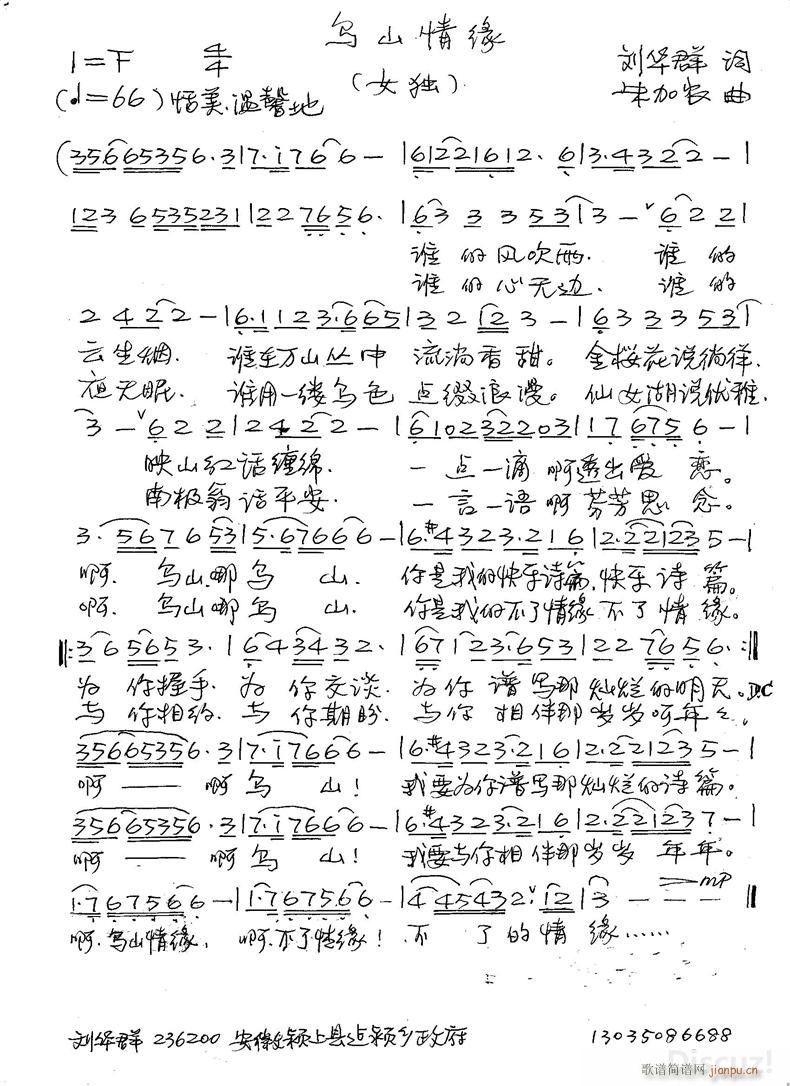 乌山情缘
1=F 4/4 (女独) 刘华群 词
(♩=66) 恬美.温馨地 朱加农 曲
(35665356.3|7.i766-|61221612.6|3.4322-|
123 6535231|227656.|63 3 353|3-ˇ622|
谁的风吹雨. 谁的
谁的心无边. 谁的
2422-|6.1123.665|32 123-|6333353|
云生烟. 谁在万山丛中 流淌香甜。金桜花说徜徉.
夜无眠. 谁用一缕乌色 点缀浪漫。仙女湖说优雅.
3-ˇ622|2422-|6102322203|176756-|
映山红话缠绵. 一点一滴啊透出爱恋。
南极翁话平安. 一言一语啊芬芳思念。
3.567653|5.67666-|6.#4323.216|2.221235-|
啊. 乌山哪乌山. 你是我的快乐诗篇,快乐诗篇。
啊. 乌山哪乌山. 你是我的不了情缘不了情缘。
‖:365653.|643432.|67123.653|227656.:‖
为你握手.为你交谈.为你谱写那灿烂的明天。D.C
与你相约.与你期盼.与你相伴那岁岁啊年々.
35665356.3|7.i7666-|6.#4323.216|2.221235-|
啊——啊乌山! 我要为你谱写那灿烂的诗篇。
35665356.3|7.i7666-|6.#4323.216|2.221237-|
啊——啊乌山! 我要与你相伴那岁岁年年。
mp
1.7676566-|1.7675.66-|445432.ˇ12|3---‖
啊.乌山情缘, 啊.不了情缘! 不了的情缘……
刘华群 236200 安徽颍上县 颍乡政府 13035086688
Discuz!
歌谱简谱网
jianpu.cn